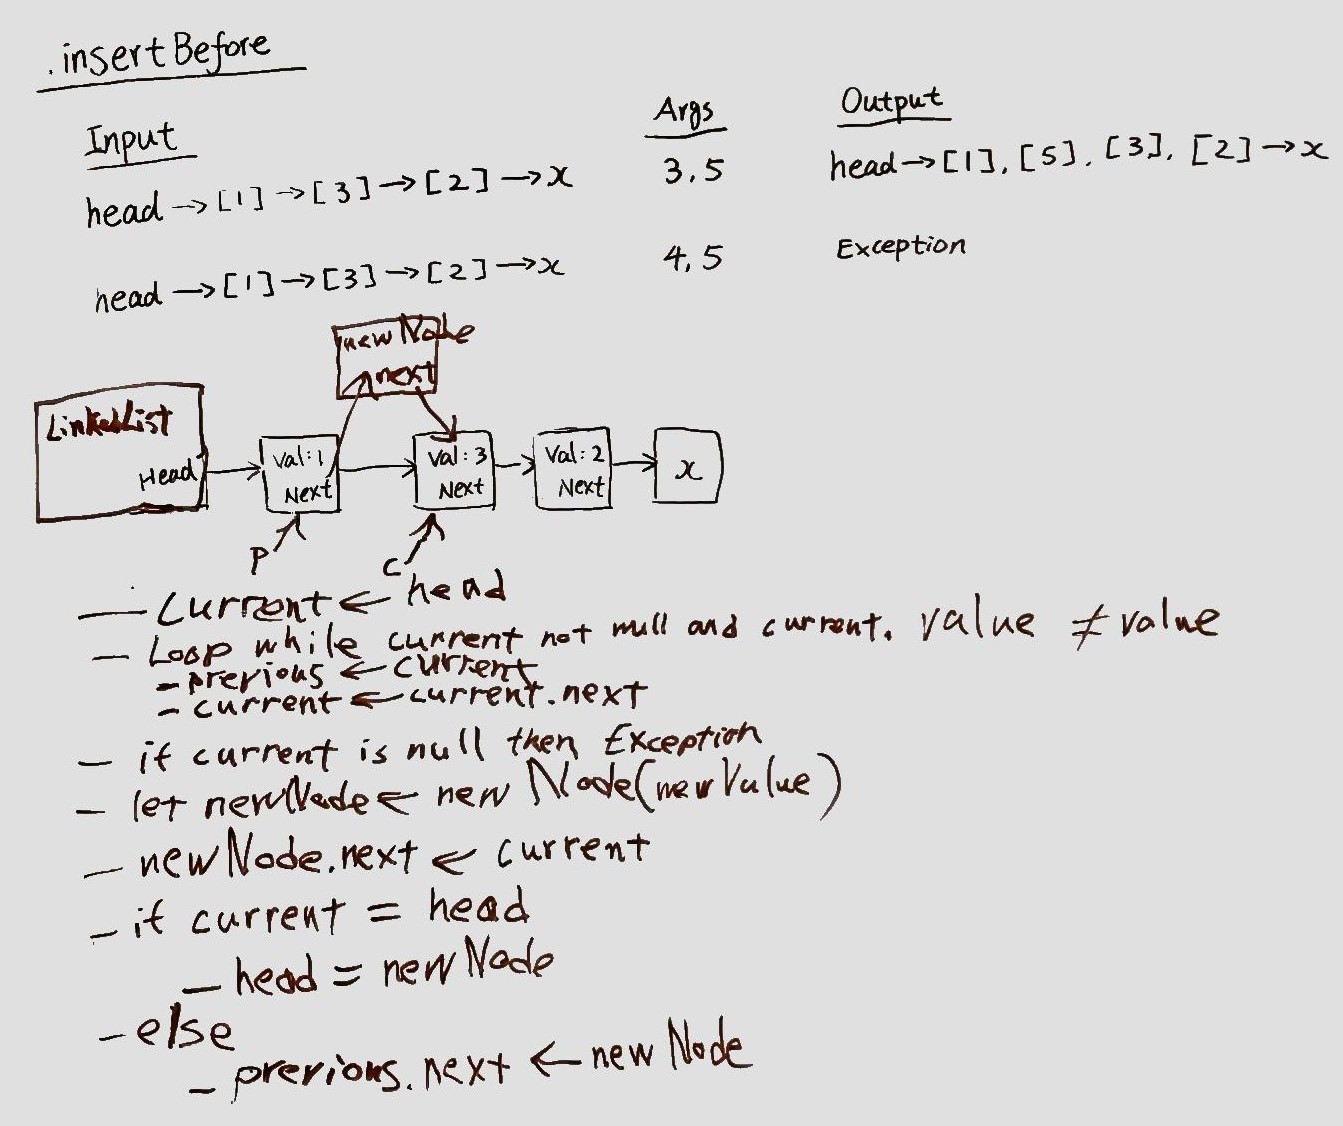 .insertBefore
Input Args Output
head→[1]→[3]→[2]→x 3,5 head→[1], [5], [3], [2]→x
head→[1]→[3]→[2]→x 4,5 Exception
newNode
next
LinkedList
Head
Val:1
Next
Val:3
Next
Val:2
Next
x
P
C
— Current ← head
— Loop while current not null and current. value ≠ value
- previous ← current
- current ← current.next
— if current is null then Exception
- let newNode ← new Node(newValue)
— newNode.next ← current
- if current = head
- head = newNode
- else
- previous.next ← new Node